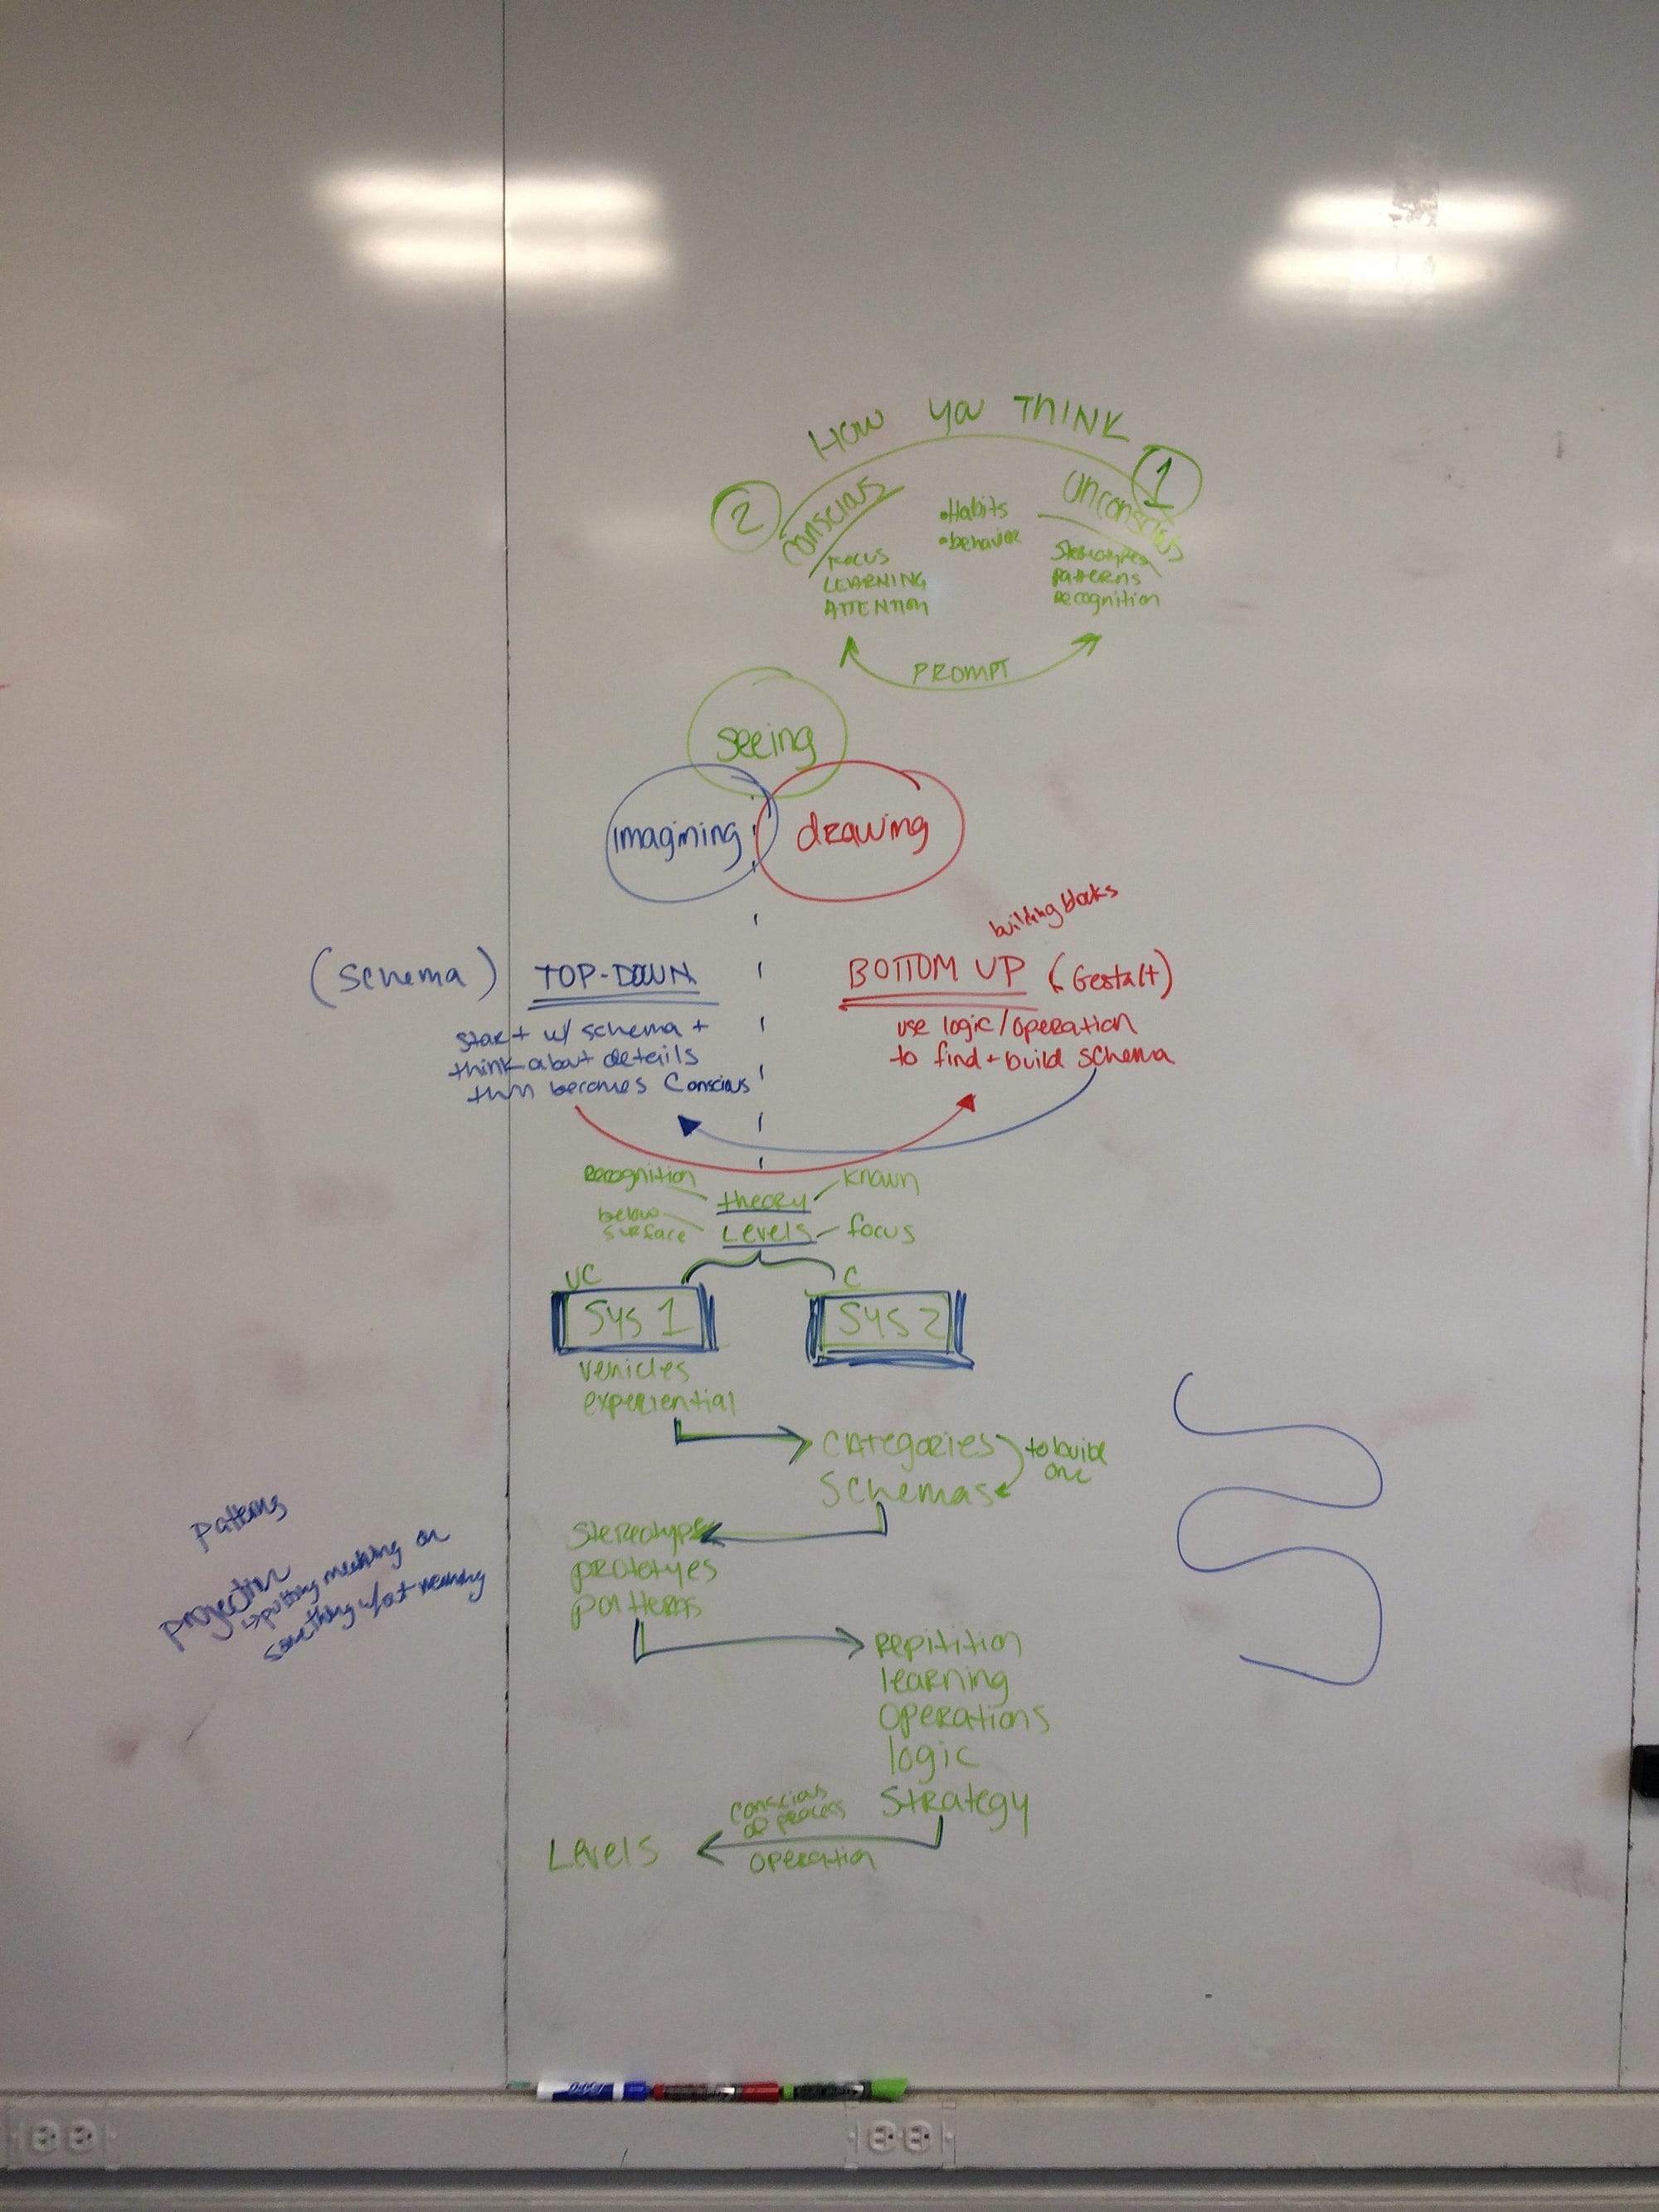 HOW YOU THINK
2
CONSCIOUS
FOCUS
LEARNING
ATTENTION
•Habits
•behavior
1
Unconscious
Stereotypes
patterns
recognition
PROMPT
seeing
imagining
drawing
building blocks
(schema) TOP-DOWN
start w/ schema +
think about details
thn becomes Conscious
BOTTOM UP (Gestalt)
use logic/operation
to find + build schema
Recognition
theory
known
below
surface
Levels
focus
UC
C
Sys 1
Sys 2
vehicles
experiential
CATEGORIES
Schemas
to build
one
Stereotype
prototyes
patterns
Repitition
learning
operations
logic
Strategy
Conscious
of process
operation
Levels
patterns
projection
→putting meaning on
something w/out meaning
EXPO